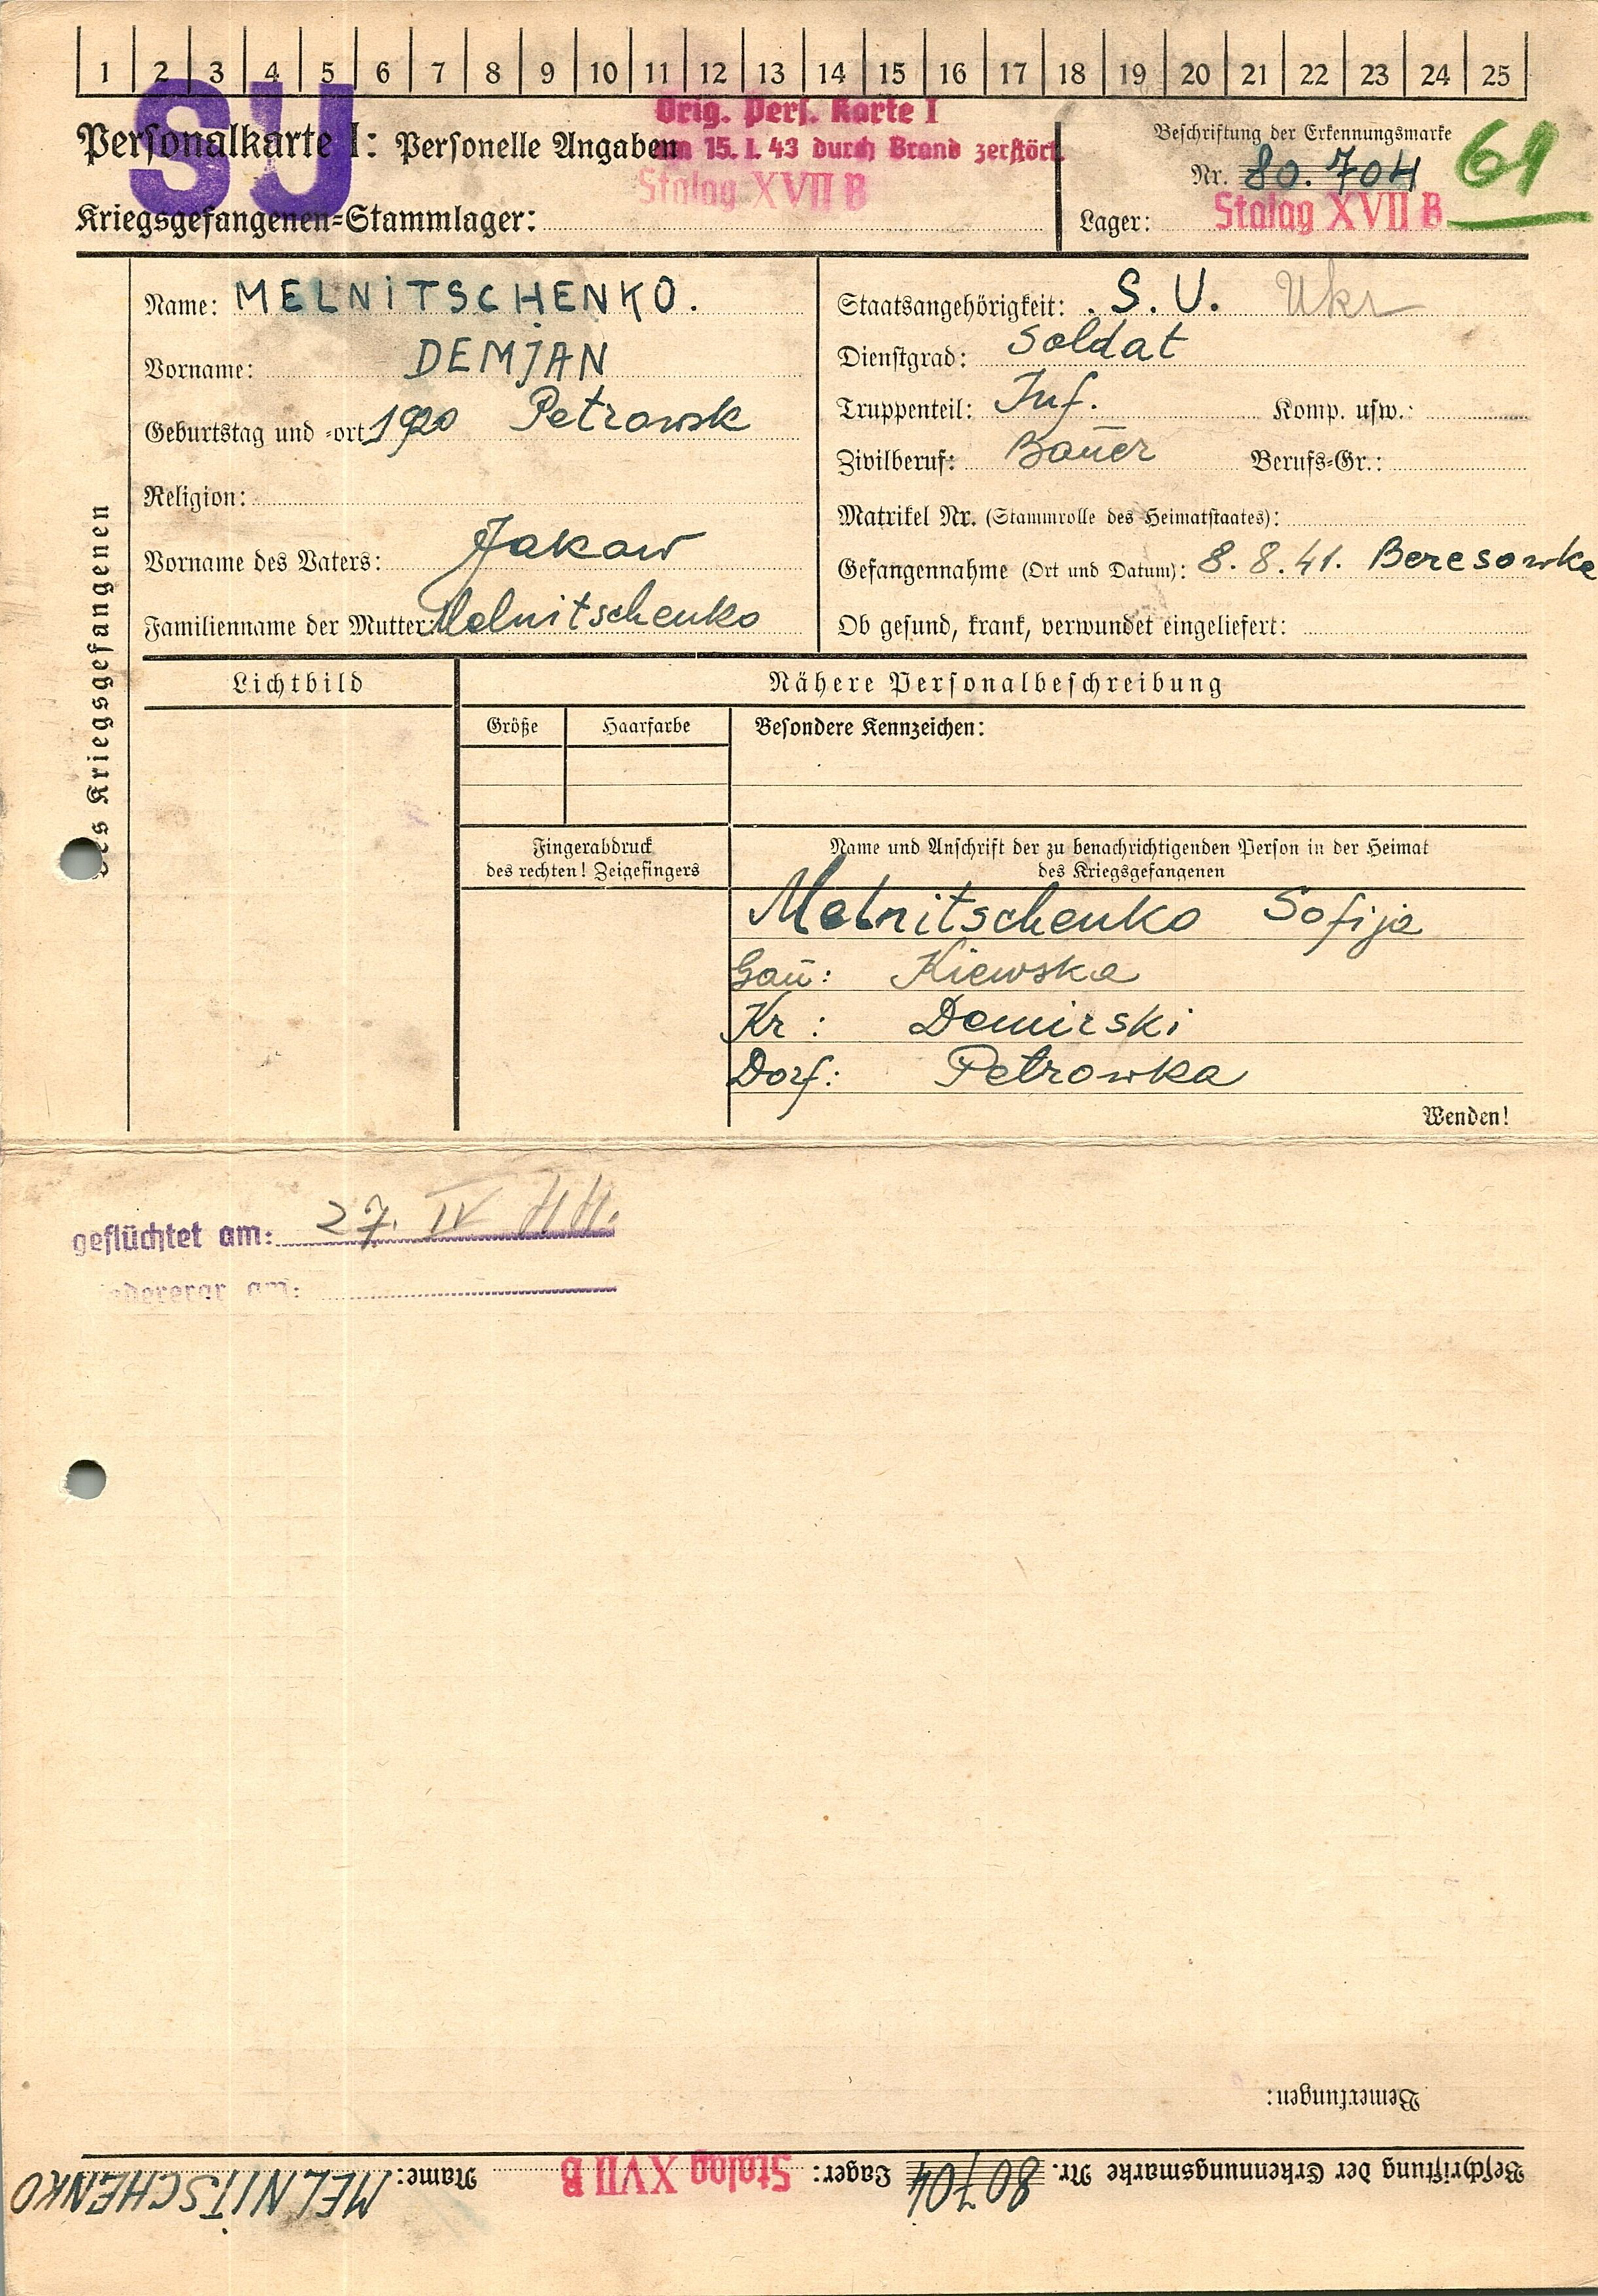 1 2 3 4 5 6 7 8 9 10 11 12 13 14 15 16 17 18 19 20 21 22 23 24 25
SU
Orig. Pers. Karte I
am 15. I. 43 durch Brand zerstört.
Stalag XVII B
Personalkarte I: Personelle Angaben
Kriegsgefangenen-Stammlager:
Beschriftung der Erkennungsmarke
Nr. 80.704
61
Lager: Stalag XVII B
des Kriegsgefangenen
Name: MELNITSCHENKO.
Vorname: DEMJAN
Geburtstag und -ort 1920 Petrowsk
Religion:
Vorname des Vaters: Jakow
Familienname der Mutter: Melnitschenko
Staatsangehörigkeit: S.U. Ukr
Dienstgrad: Soldat
Truppenteil: Inf. Komp. usw.:
Zivilberuf: Bauer Berufs-Gr.:
Matrikel Nr. (Stammrolle des Heimatstaates):
Gefangennahme (Ort und Datum): 8.8.41. Beresowke
Ob gesund, krank, verwundet eingeliefert:
Lichtbild
Nähere Personalbeschreibung
Größe Haarfarbe Besondere Kennzeichen:
Fingerabdruck
des rechten! Zeigefingers
Name und Anschrift der zu benachrichtigenden Person in der Heimat
des Kriegsgefangenen
Melnitschenko Sofija
Gau: Kiewska
Kr: Demirski
Dorf: Petrowka
Wenden!
geflüchtet am: 27. IV 44.
am:
Bemerkungen:
Beschriftung der Erkennungsmarke Nr. 80704 Lager: Stalag XVII B Name: MELNITSCHENKO